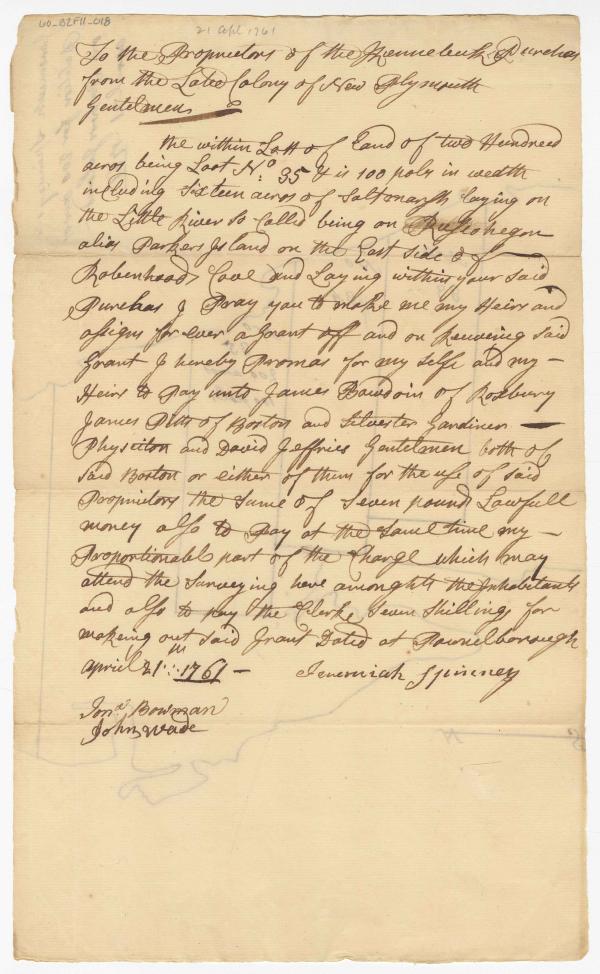 60_B2F11_018
21 Apl 1761
To the Proprietors of the Kennebeck Purchas
from the Late Colony of New Plymouth
Gentelmen
the within Lott of Land of two Hundred
acros being Loot No 35 & is 100 poly in weadth
including Sixteen acros of Saltmarsh laying on
the Little River so Called being on
alias Parkers Island on the East side of
Robenhoods Cove and Laying within your said
Purchas I Pray you to make me my Heirs and
assigns for ever a Grant off and on Receveing said
Grant I hereby Promas for my selfe and my
Heirs to Pay unto James Bowdoin of Roxbury
James Pitts of Boston and Silvester Gardiner
Physition and David Jeffries Gentelmen both of
said Boston or either of them for the use of said
Proprietors the Sume of Seven pounds Lawfull
money also to Pay at the Same time my
Proportionable part of the Charge which may
attend the Surveying have amonghts the Inhabitants
and also to pay the Clerke Seven Shillings for
making out said Grant Dated at Pownelborough
April 21 1761 Jeremiah Spinney
Jona Bowman
John Wade
N